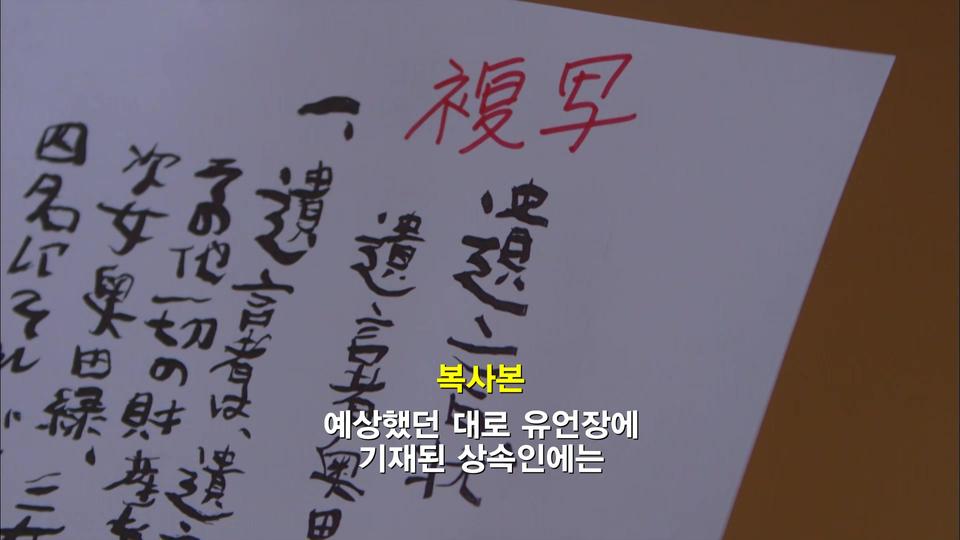 複写
遺言状
遺言者奥田
一、
遺言者は、遺言
その他一切の財産を
次女奥田緑、三女
四名にそれ
복사본
예상했던 대로 유언장에
기재된 상속인에는